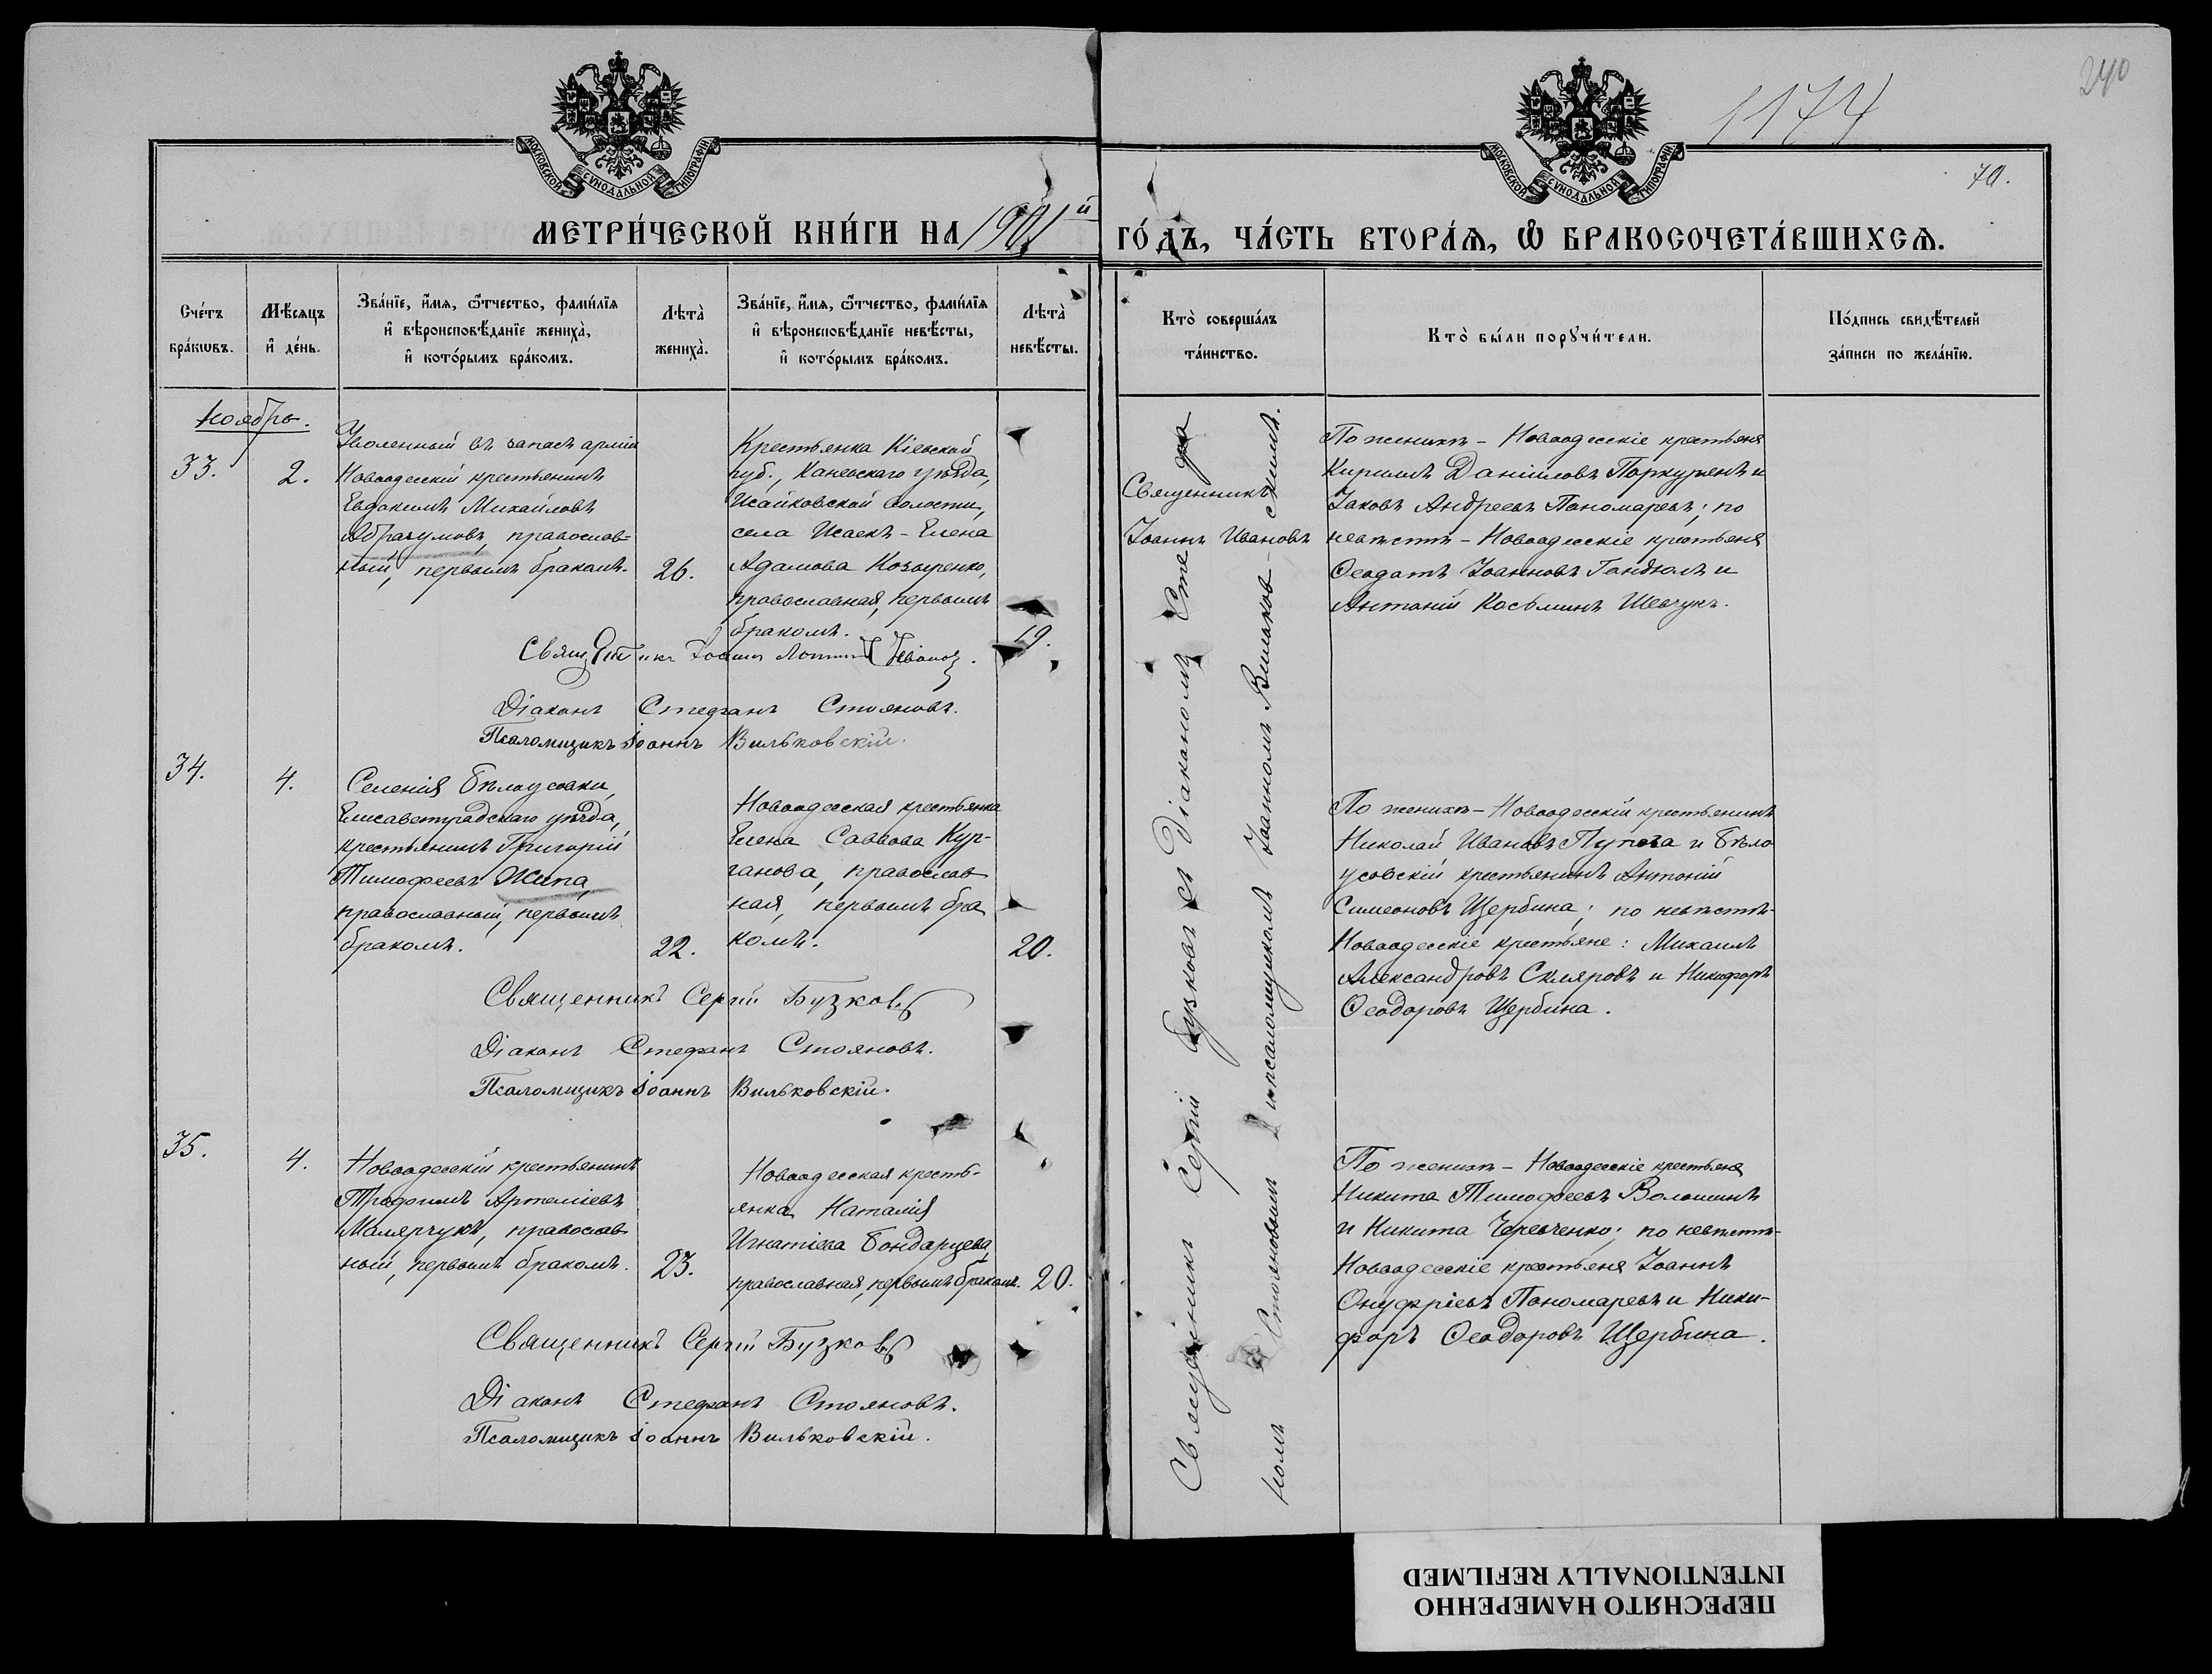 240
1174
70.
МОСКОВСКОЙ СѴНОДАЛЬНОЙ ТИПОГРАФІИ
МОСКОВСКОЙ СѴНОДАЛЬНОЙ ТИПОГРАФІИ
МЕТРИ́ЧЕСКОЙ КНИ́ГИ НА 1901й ГО́ДЪ, ЧА́СТЬ ВТОРА́Ѧ, Ѡ҆ БРАКОСОЧЕТА́ВШИХСѦ.
Сче́тъ
бра́кѡвъ.
Мѣ́сѧцъ
и҆ де́нь.
Зва́нїе, и҆́мѧ, ѻ҆́тчество, фами́лїѧ
и҆ вѣроисповѣ́данїе жениха̀,
и҆ кото́рымъ бра́комъ.
Лѣта̀
жениха̀.
Зва́нїе, и҆́мѧ, ѻ҆́тчество, фами́лїѧ
и҆ вѣроисповѣ́данїе невѣ́сты,
и҆ кото́рымъ бра́комъ.
Лѣта̀
невѣ́сты.
Кто̀ соверша́лъ
та́инство.
Кто̀ бы́ли порꙋчи́тели.
По́дпись свидѣ́телей
за́писи по жела́нїю.
Ноябрь.
33.
2.
Уволенный въ запасъ арміи
Новоодесскій крестьянинъ
Евдокимъ Михайловъ
Абрагумовъ, православ=
ный, первымъ бракомъ.
26.
Крестьянка Кіевской
губ., Каневскаго уѣзда,
Исайковской волости,
села Исаекъ - Елена
Адамова Козыренко,
православная, первымъ
бракомъ.
19.
Священникъ
Іоаннъ Ивановъ
По женихѣ - Новоодесскіе крестьяне
Кириллъ Даніиловъ Поркуянъ и
Іаковъ Андреевъ Пономаревъ; по
невѣстѣ - Новоодесскіе крестьяне
Ѳеодотъ Іоанновъ Гандюлъ и
Антоній Косьминъ Шевчукъ.
Священникъ Іоаннъ Ивановъ.
Діаконъ Стефанъ Стояновъ.
Псаломщикъ Іоаннъ Вильковскій.
34.
4.
Селенія Бѣлоусовки,
Елисаветградскаго уѣзда,
крестьянинъ Григорій
Тимофеевъ Жипа,
православный, первымъ
бракомъ.
22.
Новоодесская крестьянка
Елена Саввова Кур-
ганова, православ
ная, первымъ бра
комъ.
20.
По женихѣ - Новоодесскій крестьянинъ
Николай Ивановъ Пупеза и Бѣло
усовскій крестьянинъ Антоній
Симеоновъ Щербина; по невѣстѣ-
Новоодесскіе крестьяне: Михаилъ
Александровъ Скляровъ и Никифоръ
Ѳеодоровъ Щербина.
Священникъ Сергій Бузковъ
Діаконъ Стефанъ Стояновъ.
Псаломщикъ Іоаннъ Вильковскій.
35.
4.
Новоодесскій крестьянинъ
Трофимъ Артеміевъ
Малярчукъ, православ
ный, первымъ бракомъ.
23.
Новоодесская кресть-
янка Наталія
Игнатіева Бондарцева,
православная, первымъ бракомъ.
20.
По женихѣ - Новоодесскіе крестьяне
Никита Тимофеевъ Волошинъ
и Никита Черевченко; по невѣстѣ-
Новоодесскіе крестьяне Іоаннъ
Онуфріевъ Пономаревъ и Ники-
форъ Ѳеодоровъ Щербина.
Священникъ Сергій Бузковъ
Діаконъ Стефанъ Стояновъ.
Псаломщикъ Іоаннъ Вильковскій.
Священникъ Сергій Бузковъ съ Діакономъ Сте
номъ Стояновымъ и псаломщикомъ Іоанномъ Вильков-скимъ.
ПЕРЕСНЯТО НАМЕРЕННО
INTENTIONALLY REFILMED